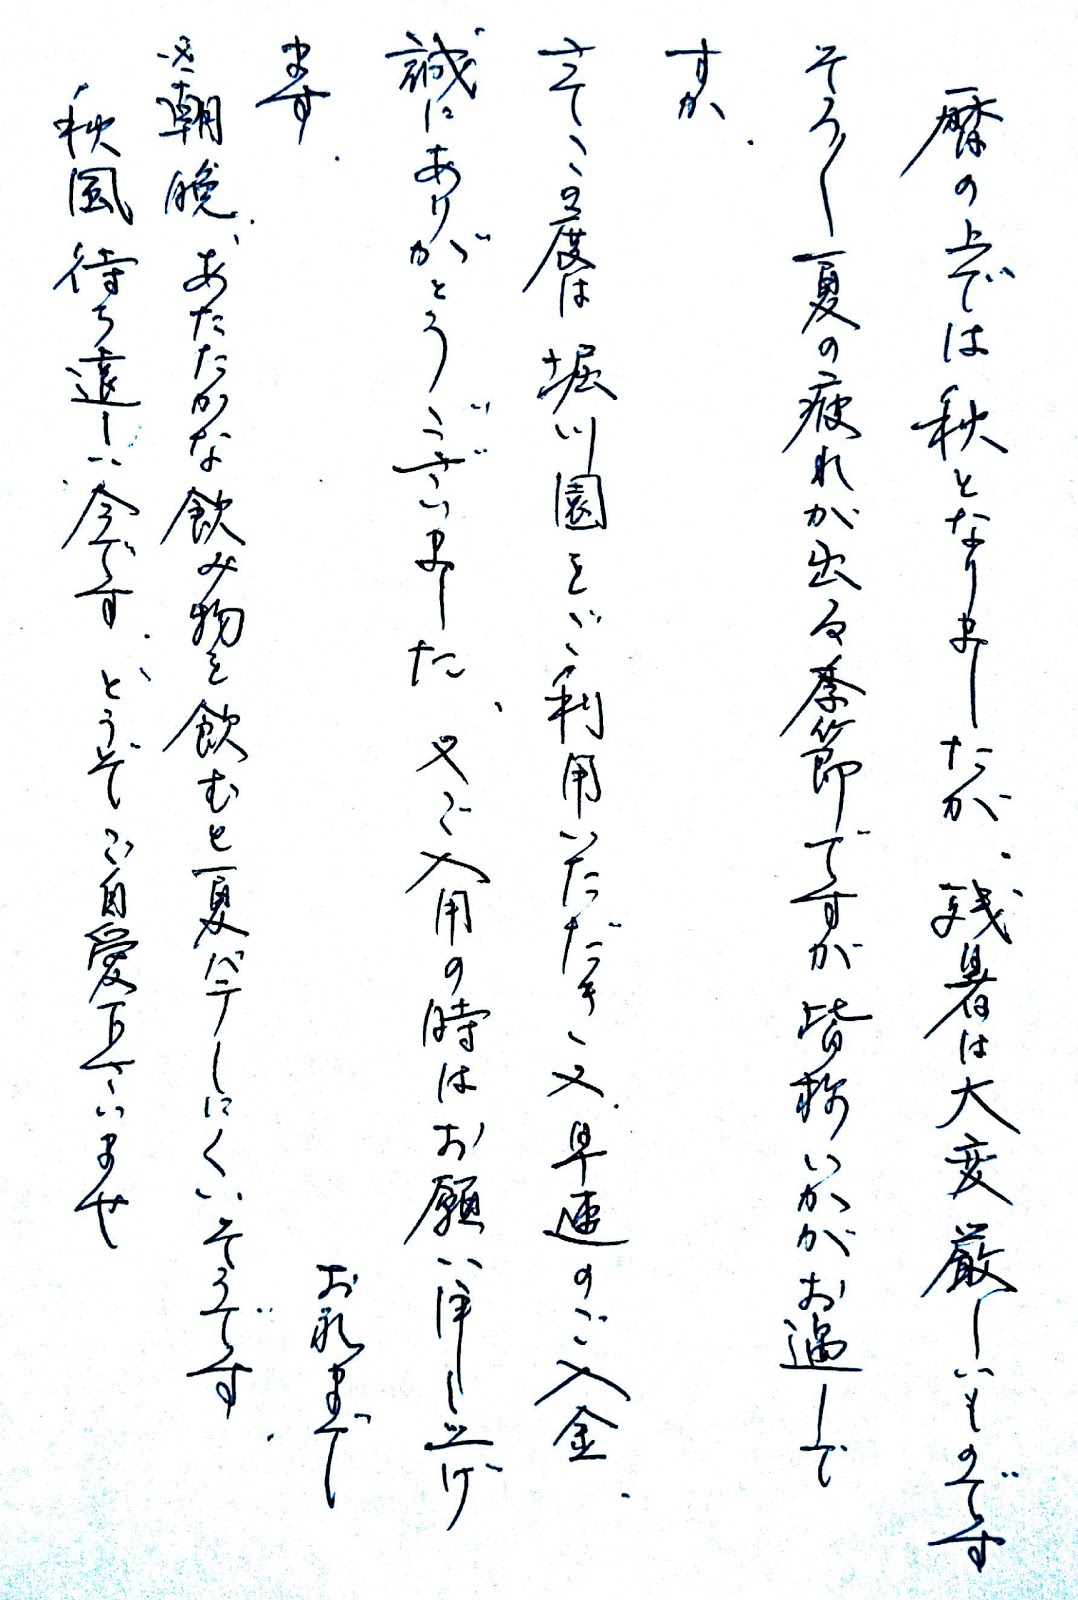 暦の上では秋となりましたが、残暑は大変厳しいものです
そろ〱夏の疲れが出る季節ですが皆称いかがお過しで
すか.
さてこの度は堀川園をご利用いただき、又、早速のご入金、
誠にありがとうございました、又ご入用の時はお願い申し上げ
ます.
お礼まで
※朝晩、あたたかな飲み物を飲むと夏バテしにくいそうです.
秋風待ち遠しい今です.どうぞご自愛下さいませ